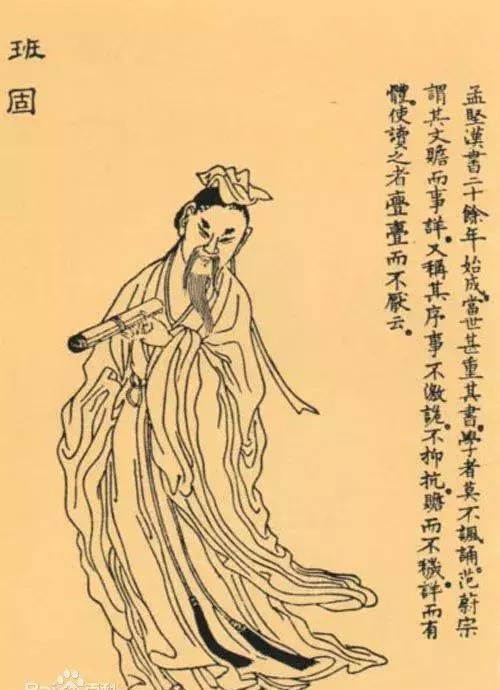 孟堅漢書二十餘年始成。當世甚重其書。學者莫不諷誦。范蔚宗
謂其文贍而事詳。又稱其序事不激詭。不抑抗。贍而不穢。詳而有
體。使讀之者亹亹而不厭云。
班固
Bai百科